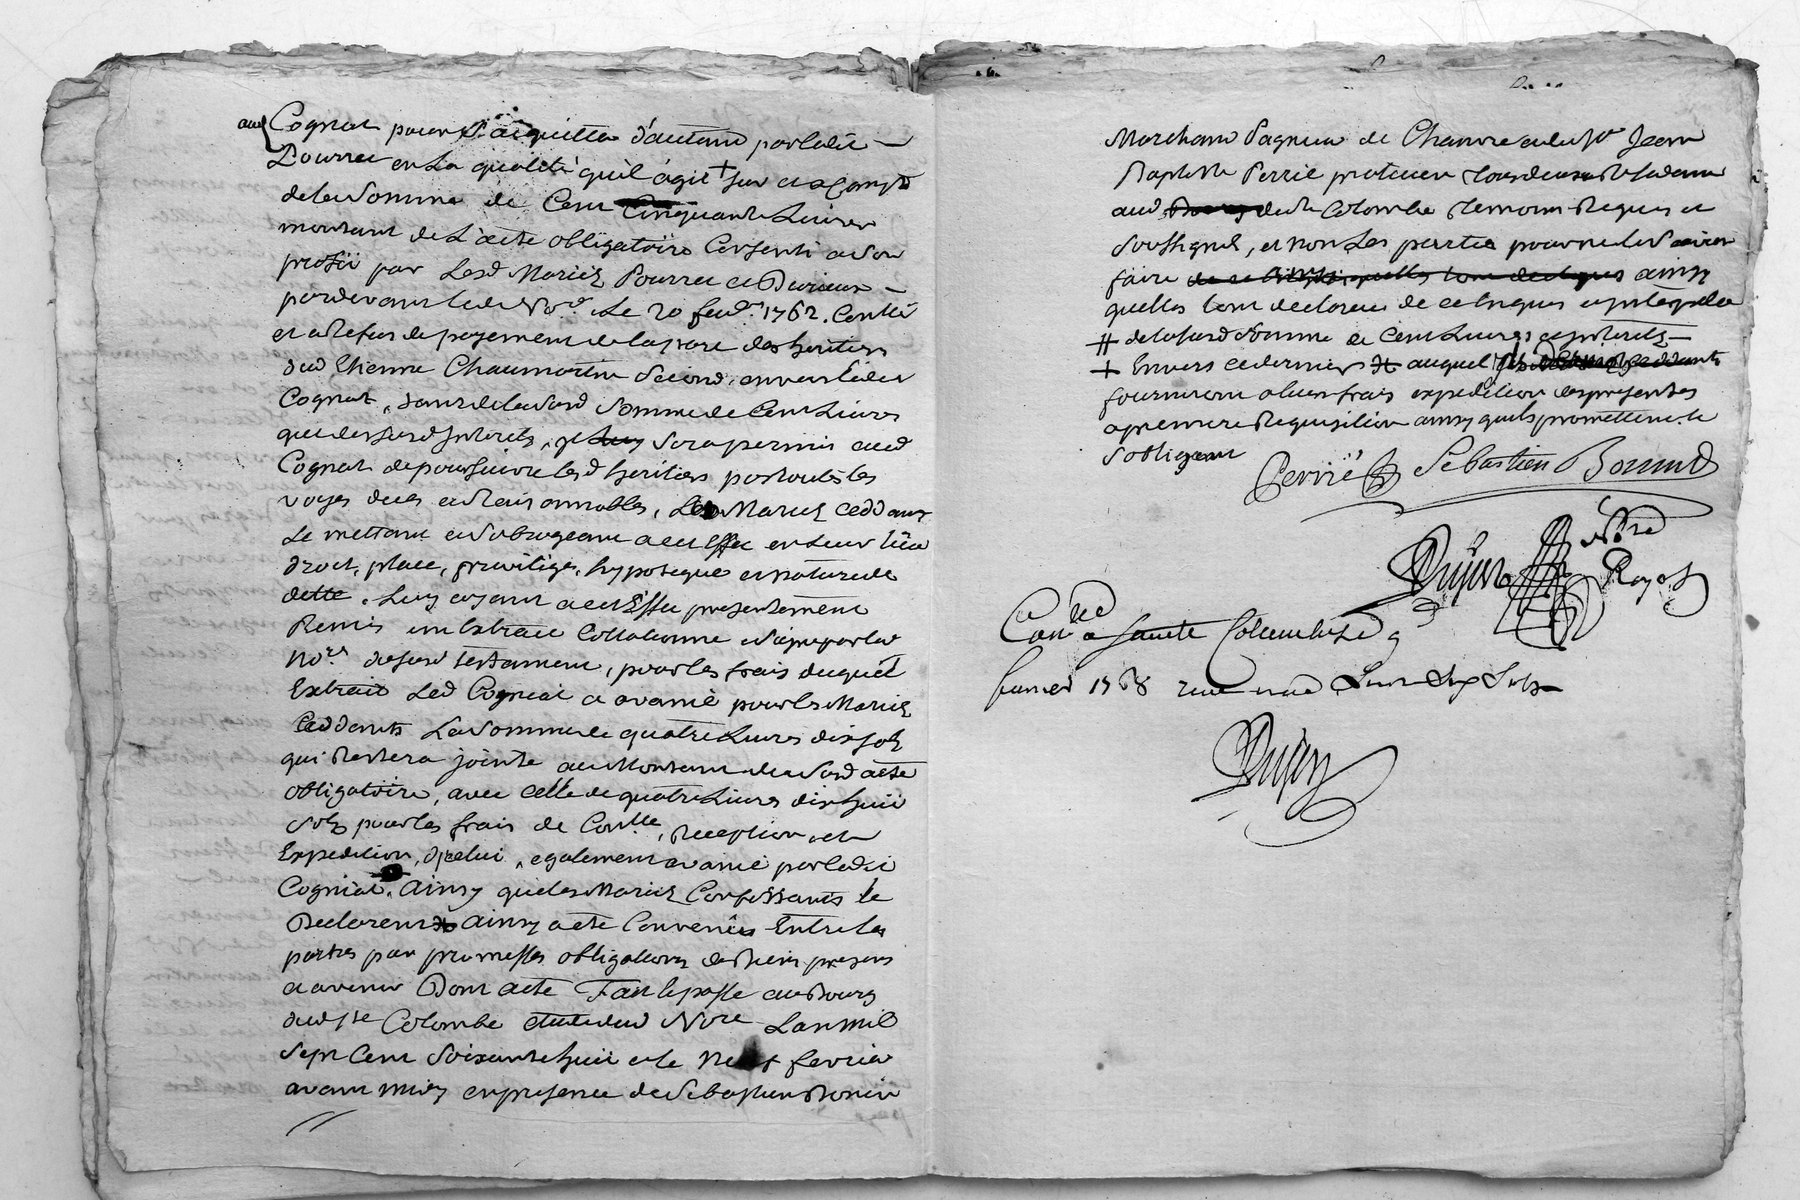 aud Cognat pour s'acquitter d'autant par ledit
Pourret en la qualité qu'il agit + sur et a compte
de la somme de Cent Cinquante Livres
montant de L'acte obligatoire Consenti a son
profit par Lesd Mariés Pourret et
pardevant led No.re Le 20 fev.r 1762. Conllé
et a refus de payement de la part des heritiers
dud Etienne Chaumartin Second, envers ledit
Cognat, tant de lasusd somme de Cent Livres
que des susd Interets, Il sera permis aud
Cognat de poursuivre lesd heritiers par toutes les
voyes dues et raisonnables, Les Mariés ceddants
Le mettant et subrogeant a cet Effet en Leur lieu
droit, place, privilége, hypoteque et nature de
dette. Luy ayant a cet Effet presentement
Remis un Extrait Collationné et signé par led
No.re du susd testament, pour les frais duquel
Extrait Led Cogniat a avancé pour les Mariés
Ceddants La somme de quatre Livres dix sols
qui restera jointe au Montant de lasusd acte
obligatoire, avec celle de quatre Livres dix huit
sols pour les frais de Conlle, reception et
Expedition, d'icelui, egalement avancé par ledit
Cogniat. Ainsy que les Mariés Confessants le
Declarent Ainsy a eté Convenû Entre les
parties par promesses obligations de biens presens
et avenir Dont acte Fait et passé au Bourg
dud Ste Colombe etude dud Nore L'an mil
sept Cent soixante huit et le Neuf fevrier
avant midy en presence de Sebastien Bonin
Marchand Pagneur de Chanvre et du Sr Jean
Baptiste Perrié praticien tous deux residants
aud de Ste Colombe temoins requis et
soussignés, et non Les parties pour ne le savoir
faire ainsy
quelles l'ont declaré de ce Enquis et interpellé
# de lasusd somme de Cent Livres et interets
+ Envers ce dernier auquel
fourniront a leurs frais expedition des presentes
a premiere requisition ainsy qu'ils promettent et
s'obligent
Perrié Sebastien Bonnid
Dujast Nore
Royal
Con.llé a Sainte Colombe le 9
fevrier 1768 reçu
Dujast